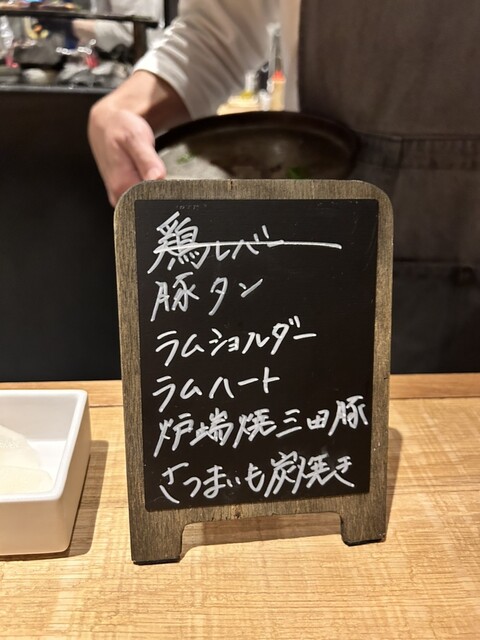 鶏レバー
豚タン
ラムショルダー
ラムハート
炉端焼三田豚
さつまいも炭焼き